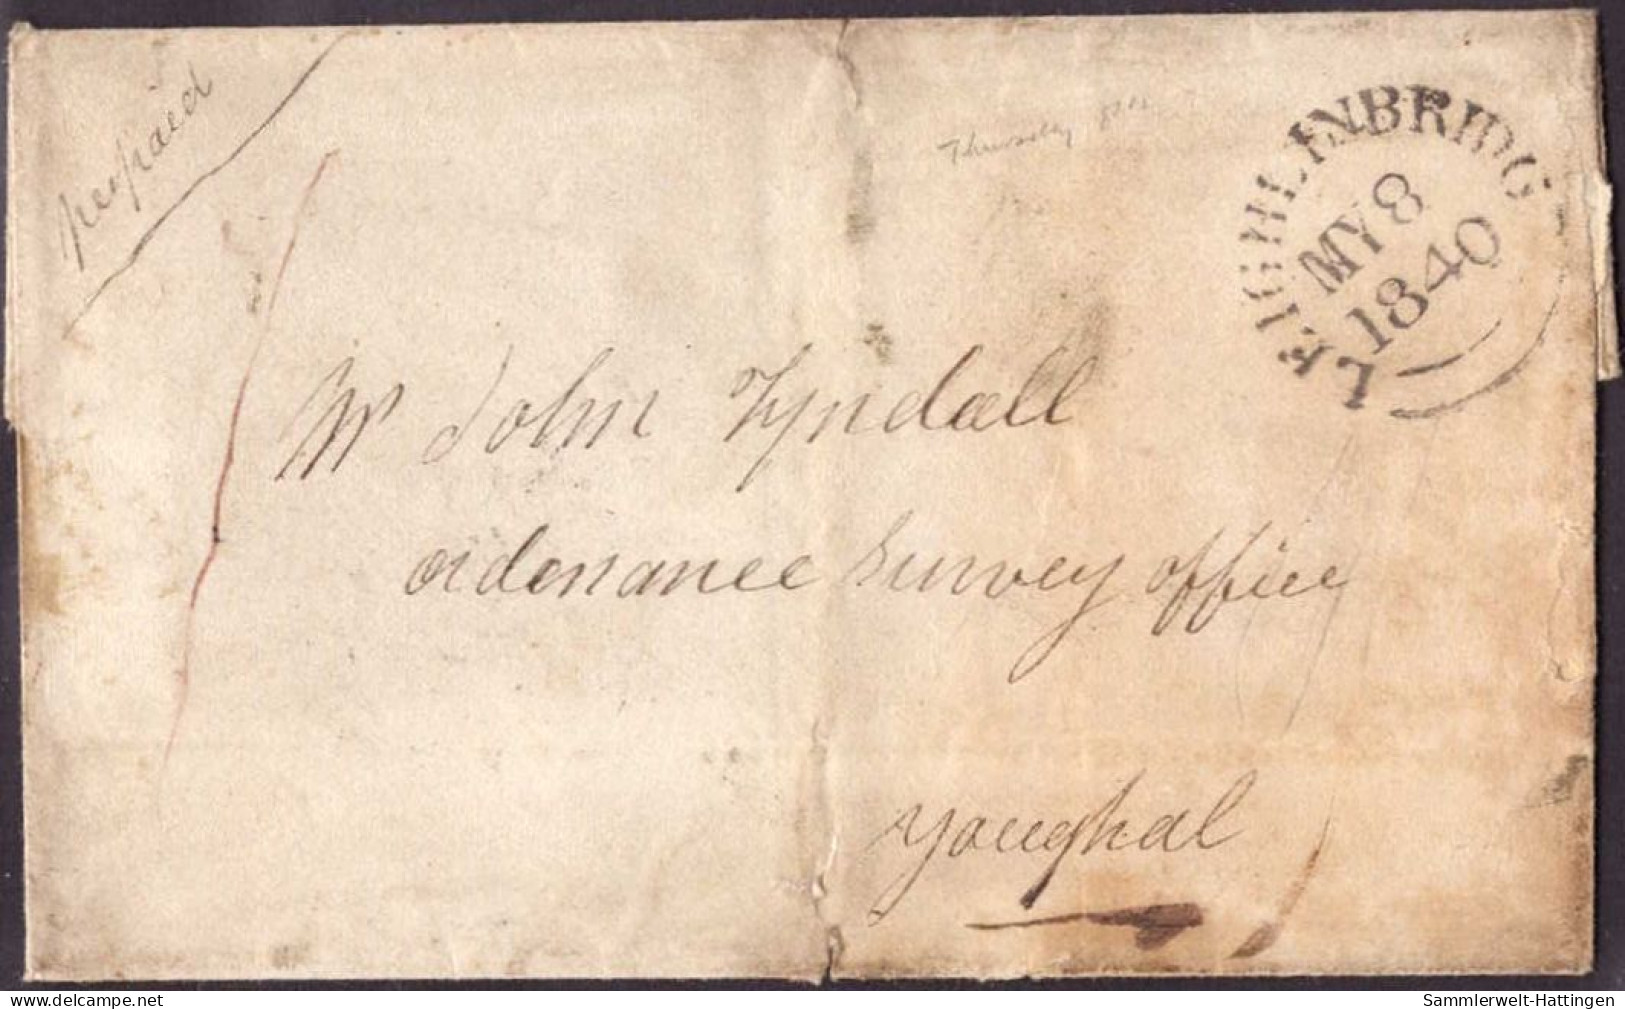 prepaied
Thursday 8th
LEIGHLINBRIDG
MY 8
1840
Mr John Tyndall
ordenance Survey office
Youghal
www.delcampe.net
Sammlerwelt-Hattingen